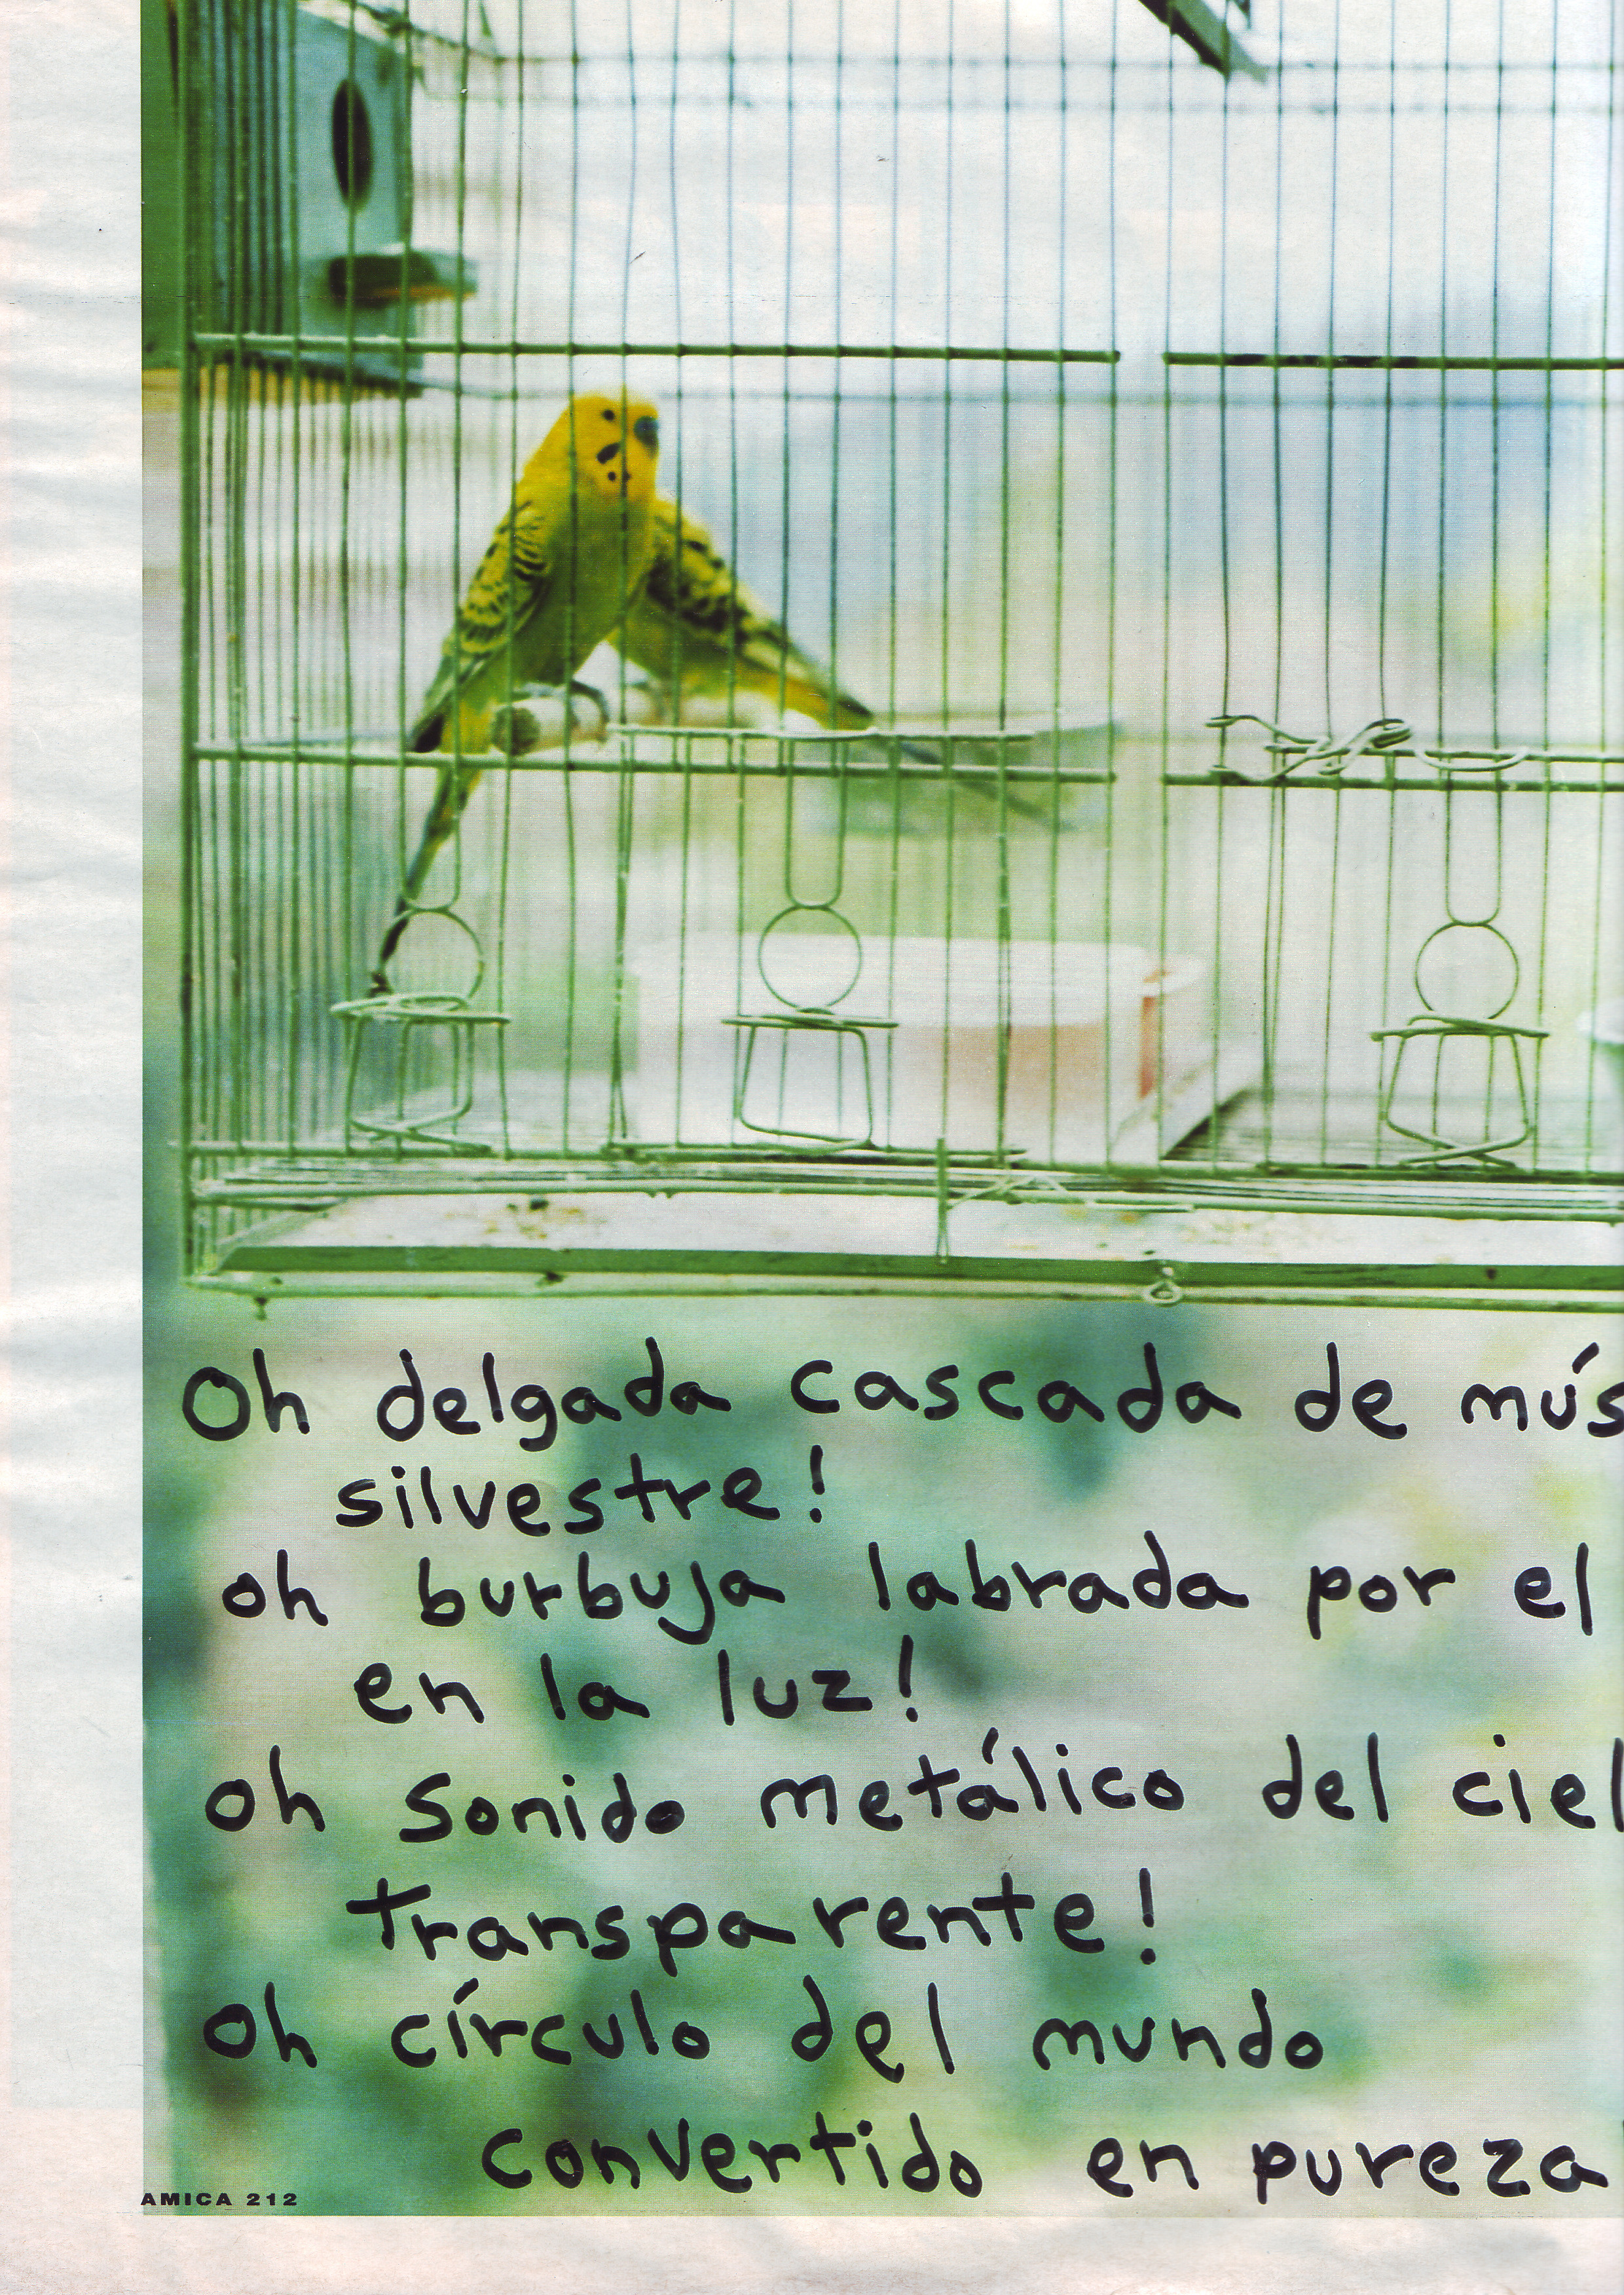 Oh delgada cascada de mús
silvestre!
oh burbuja labrada por el
en la luz!
oh sonido metálico del ciel
transparente!
oh círculo del mundo
convertido en pureza
AMICA 212